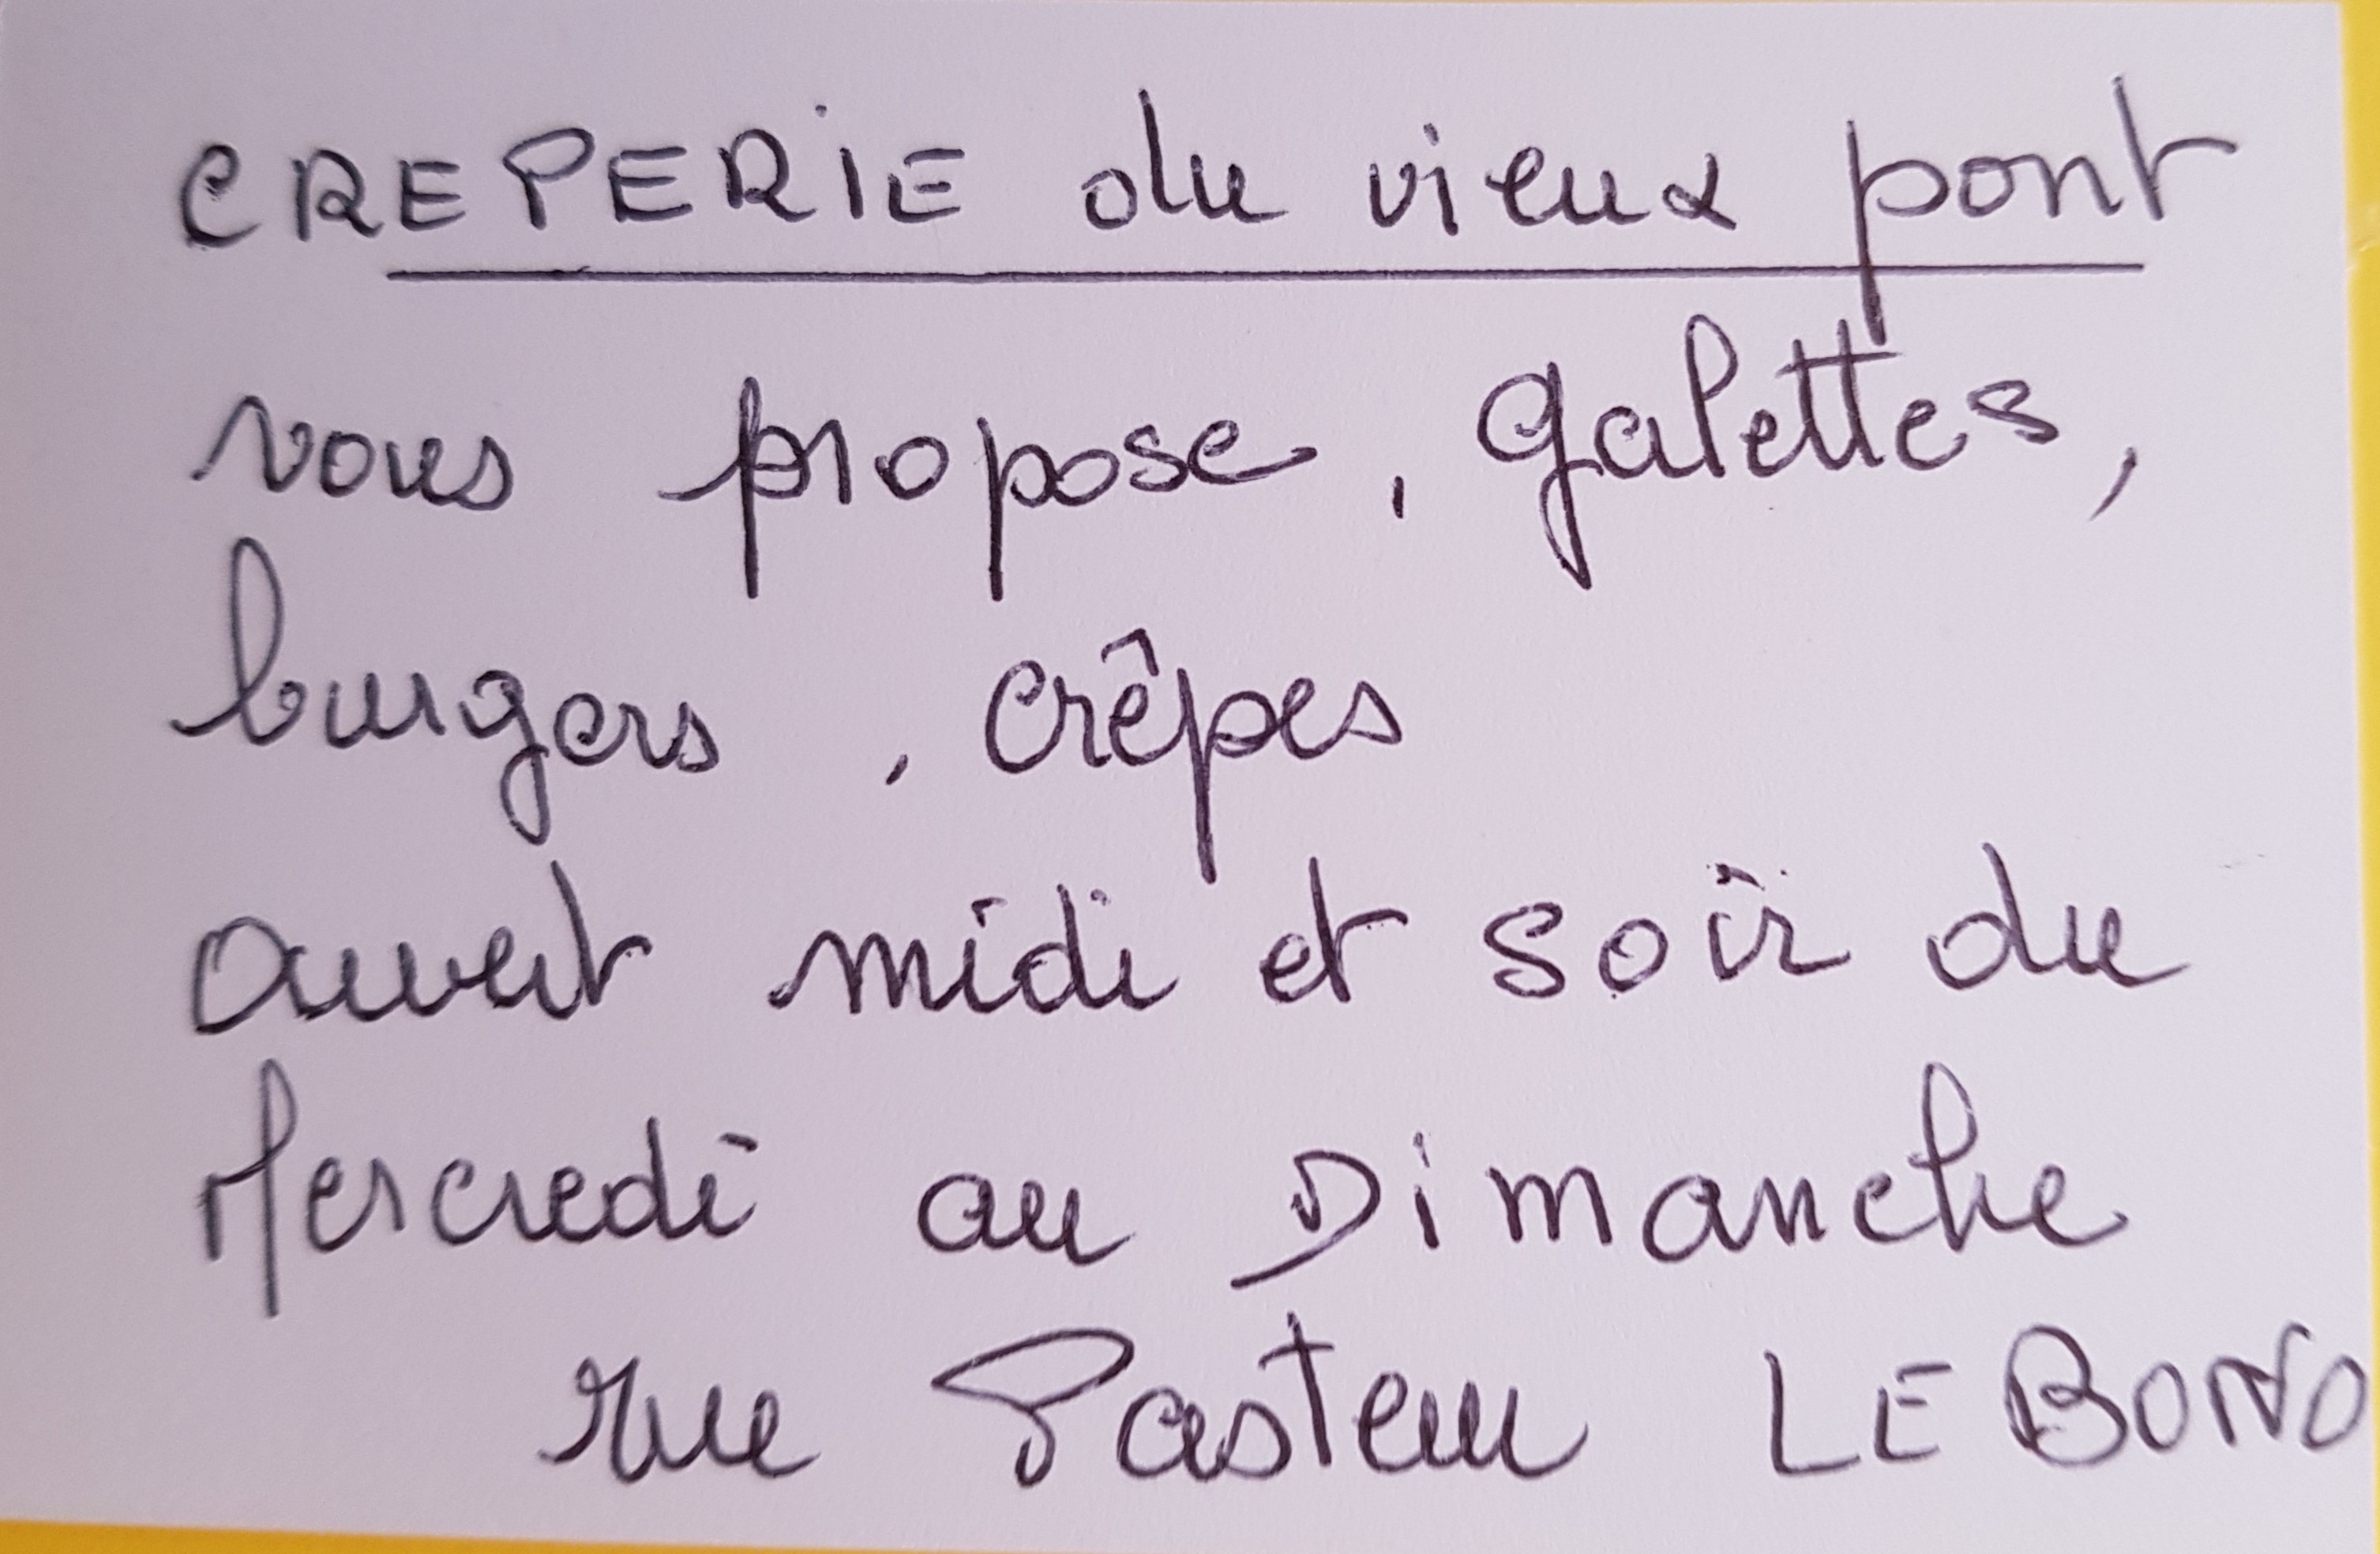 CREPERIE du vieux pont
vous propose, galettes,
burgers, crêpes
Ouvert midi et soir du
Mercredi au Dimanche
rue Pasteur LE BONO